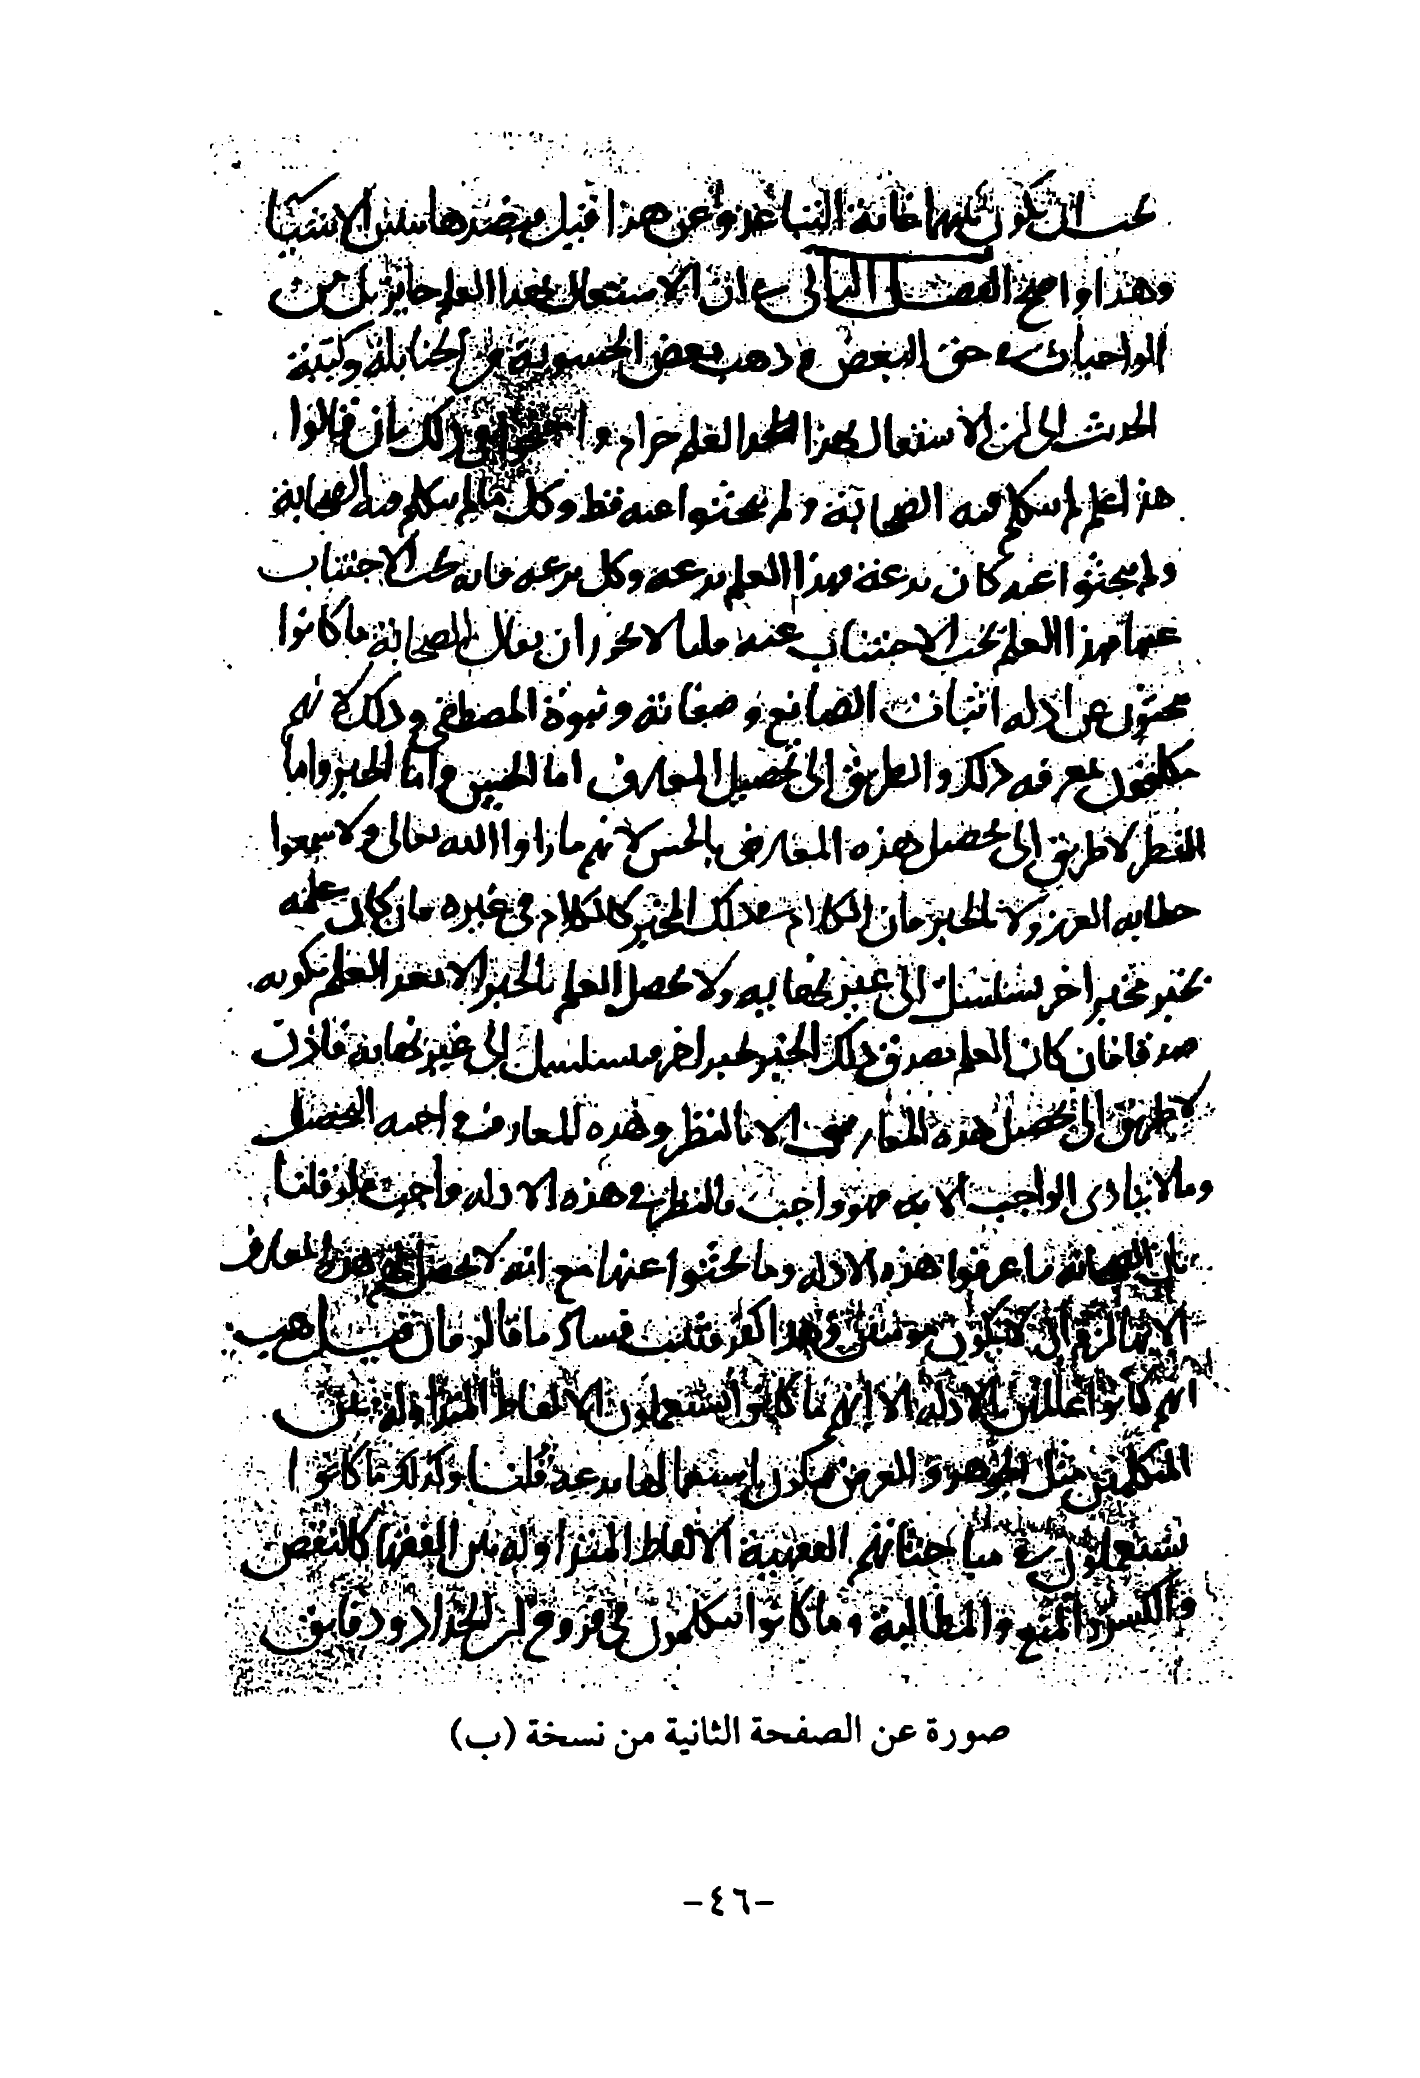 يجب ان يكون بينهما غاية التباعد وعن هذا قيل وبضدها تتبين الاشيا
وهذا واضح الفصل الثاني في ان الاشتغال بهذا العلم جايز بل من
الواجبات في حق البعض وذهب بعض الحشوية من الحنابلة وكتبة
الحديث الى ان الاشتغال بهذا العلم حرام واحتجوا في ذلك بان قالوا
هذا علم لم يتكلم فيه الصحابة ولم يبحثوا عنه قط وكل ما لم يتكلم فيه الصحابة
ولم يبحثوا عنه كان بدعة فهذا العلم بدعه وكل بدعه فانه يجب الاجتناب
عنها فهذا العلم يجب الاجتناب عنه قلنا لا يجوز ان يقال الصحابة ما كانوا
يبحثون عن ادله اثبات الصانع وصفاته ونبوة المصطفى وذلك لانهم
مكلفون بمعرفه ذلك والطريق الى تحصيل المعارف اما الحس واما الخبر واما
النظر لا طريق الى تحصيل هذه المعارف بالحس لانهم ما راوا الله تعالى ولا سمعوا
خطابه العزيز ولا بالخبر فان الكلام في ذلك الخبر كالكلام في غيره فان كان علمه
بخبر مخبر اخر يتسلسل الى غير نهايه ولا يحصل العلم بالخبر الا بعد العلم بكونه
صدقا فان كان العلم بصدق ذلك الخبر بخبر اخر فيتسلسل الى غير نهايه فاذن
لا طريق الى تحصيل هذه المعارف الا بالنظر وهذه المعارف واجبه التحصيل
وما لا يتادى الواجب الا به فهو واجب فالنظر في هذه الادله واجب ولو قلنا
بان الصحابه ما عرفوا هذه الادله وما بحثوا عنها مع انه لا يحصل لهم هذه المعارف
الا بها لزم ان لا يكون مومنين وهذا كفر فثبت فساد ما قالوا فان قيل هب
انهم كانوا عالمين بالادله الا انهم ما كانوا يستعملون الالفاظ المتداوله بين
المتكلمين مثل الجوهر والعرض فيكون استعمالها بدعة قلنا وكذلك ما كانوا
يستعملون في مباحثاتهم الفقهية الالفاظ المتداوله بين الفقها كالنقض
والكسر والمنع والمطالبة وما كانوا يتكلمون في فروع ابن الحداد ودقايق
صورة عن الصفحة الثانية من نسخة (ب)
-٤٦-